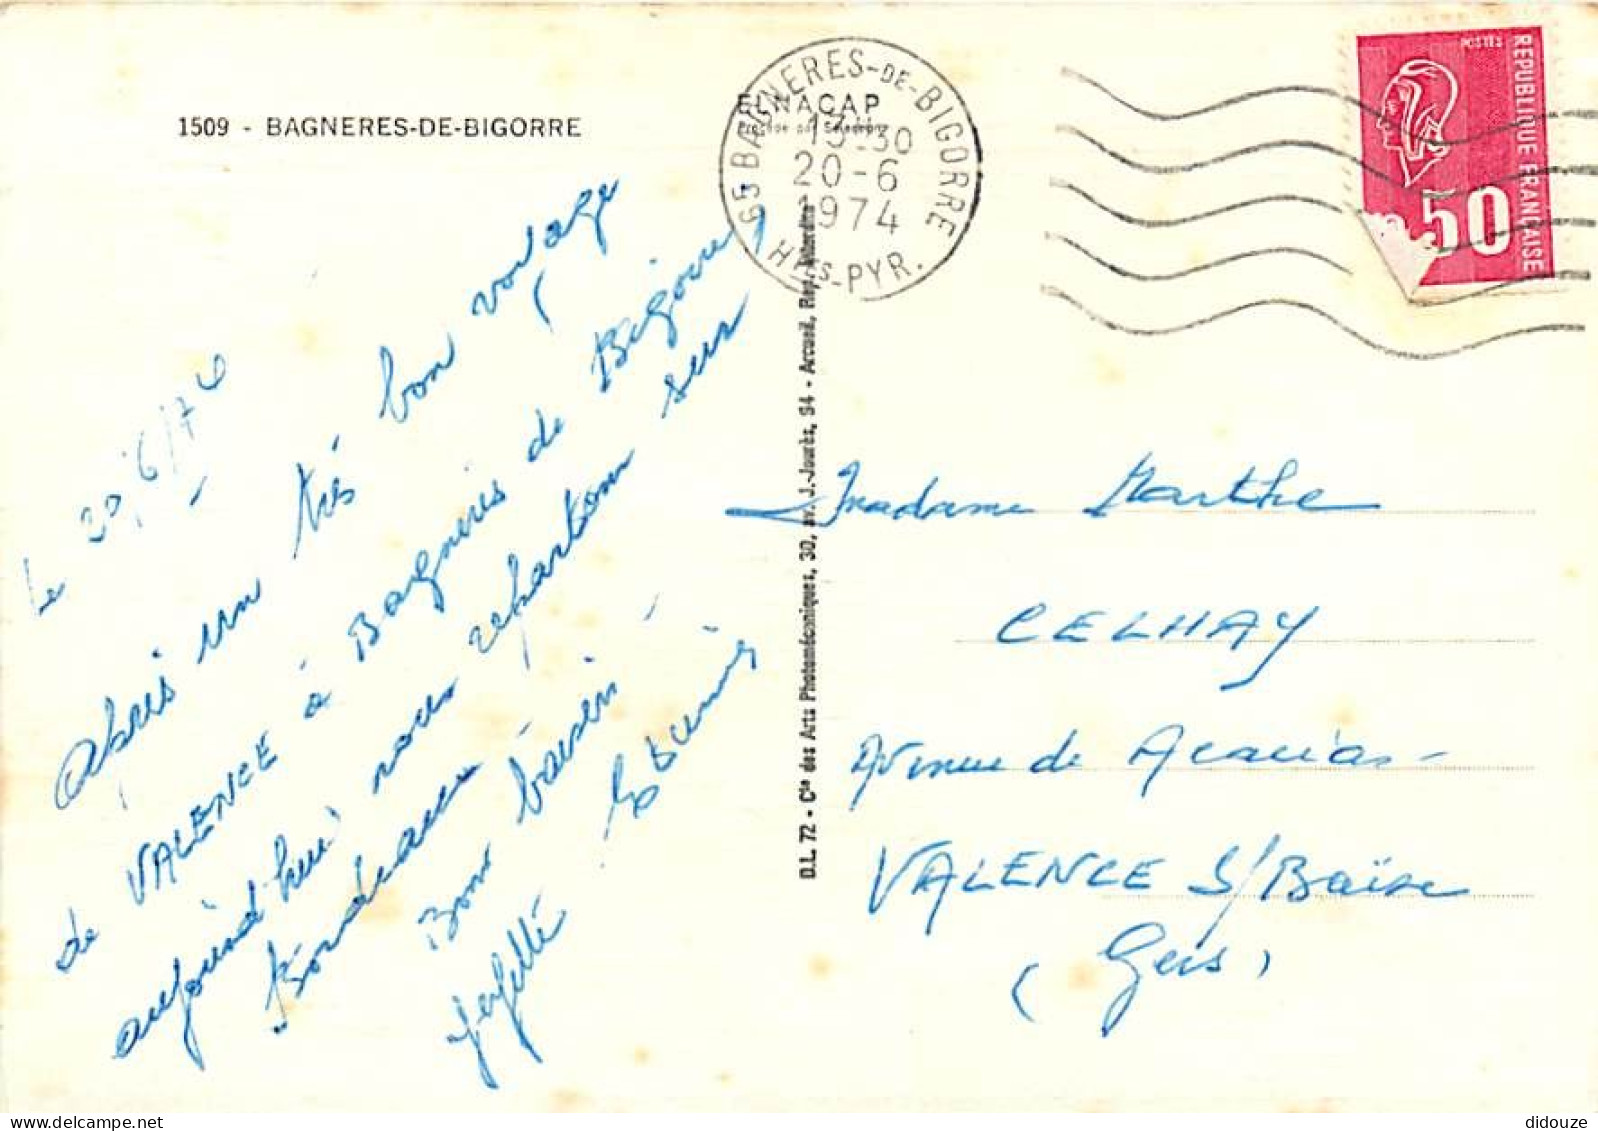 1509 - BAGNERES-DE-BIGORRE
ELNACAP
65 BAGNERES-DE-BIGORRE
13H30
20-6
1974
Htes-PYR.
POSTES
REPUBLIQUE FRANÇAISE
50
Le 20/6/74
Après un très bon voyage
de VALENCE à Bagnères de Bigorre,
aujourd'hui nous repartons sur
Bordeaux
Bons baisers
D.L. 72 - Cie des Arts Photomécaniques, 30, av. J.-Jaurès, 94 - Arcueil, Rep. Interdite
Madame Marthe
CELHAY
Avenue de Acacias -
VALENCE S/Baïse
(Gers)
didouze